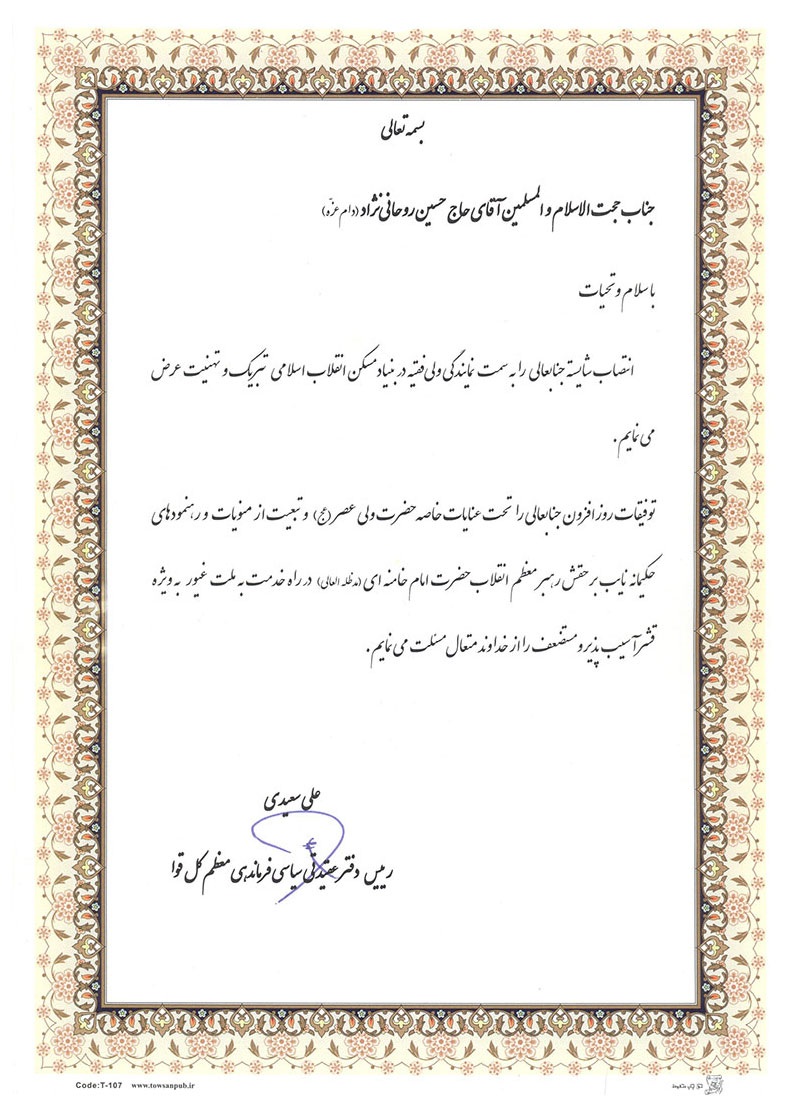 بسمه تعالی
جناب حجت الاسلام و المسلمین آقای حاج حسین روحانی نژاد (دام عزّه)
با سلام و تحیات
انتصاب شایسته جنابعالی را به سمت نمایندگی ولی فقیه در بنیاد مسکن انقلاب اسلامی تبریک و تهنیت عرض
می نمایم.
توفیقات روز افزون جنابعالی را تحت عنایات خاصه حضرت ولی عصر (عج) و تبعیت از منویات و رهنمودهای
حکیمانه نایب بر حقش رهبر معظم انقلاب حضرت امام خامنه ای (مدظله العالی) در راه خدمت به ملت غیور به ویژه
قشر آسیب پذیر و مستضعف را از خداوند متعال مسئلت می نمایم.
علی سعیدی
رییس دفتر عقیدتی سیاسی فرماندهی معظم کل قوا
Code:T-107 www.towsanpub.ir